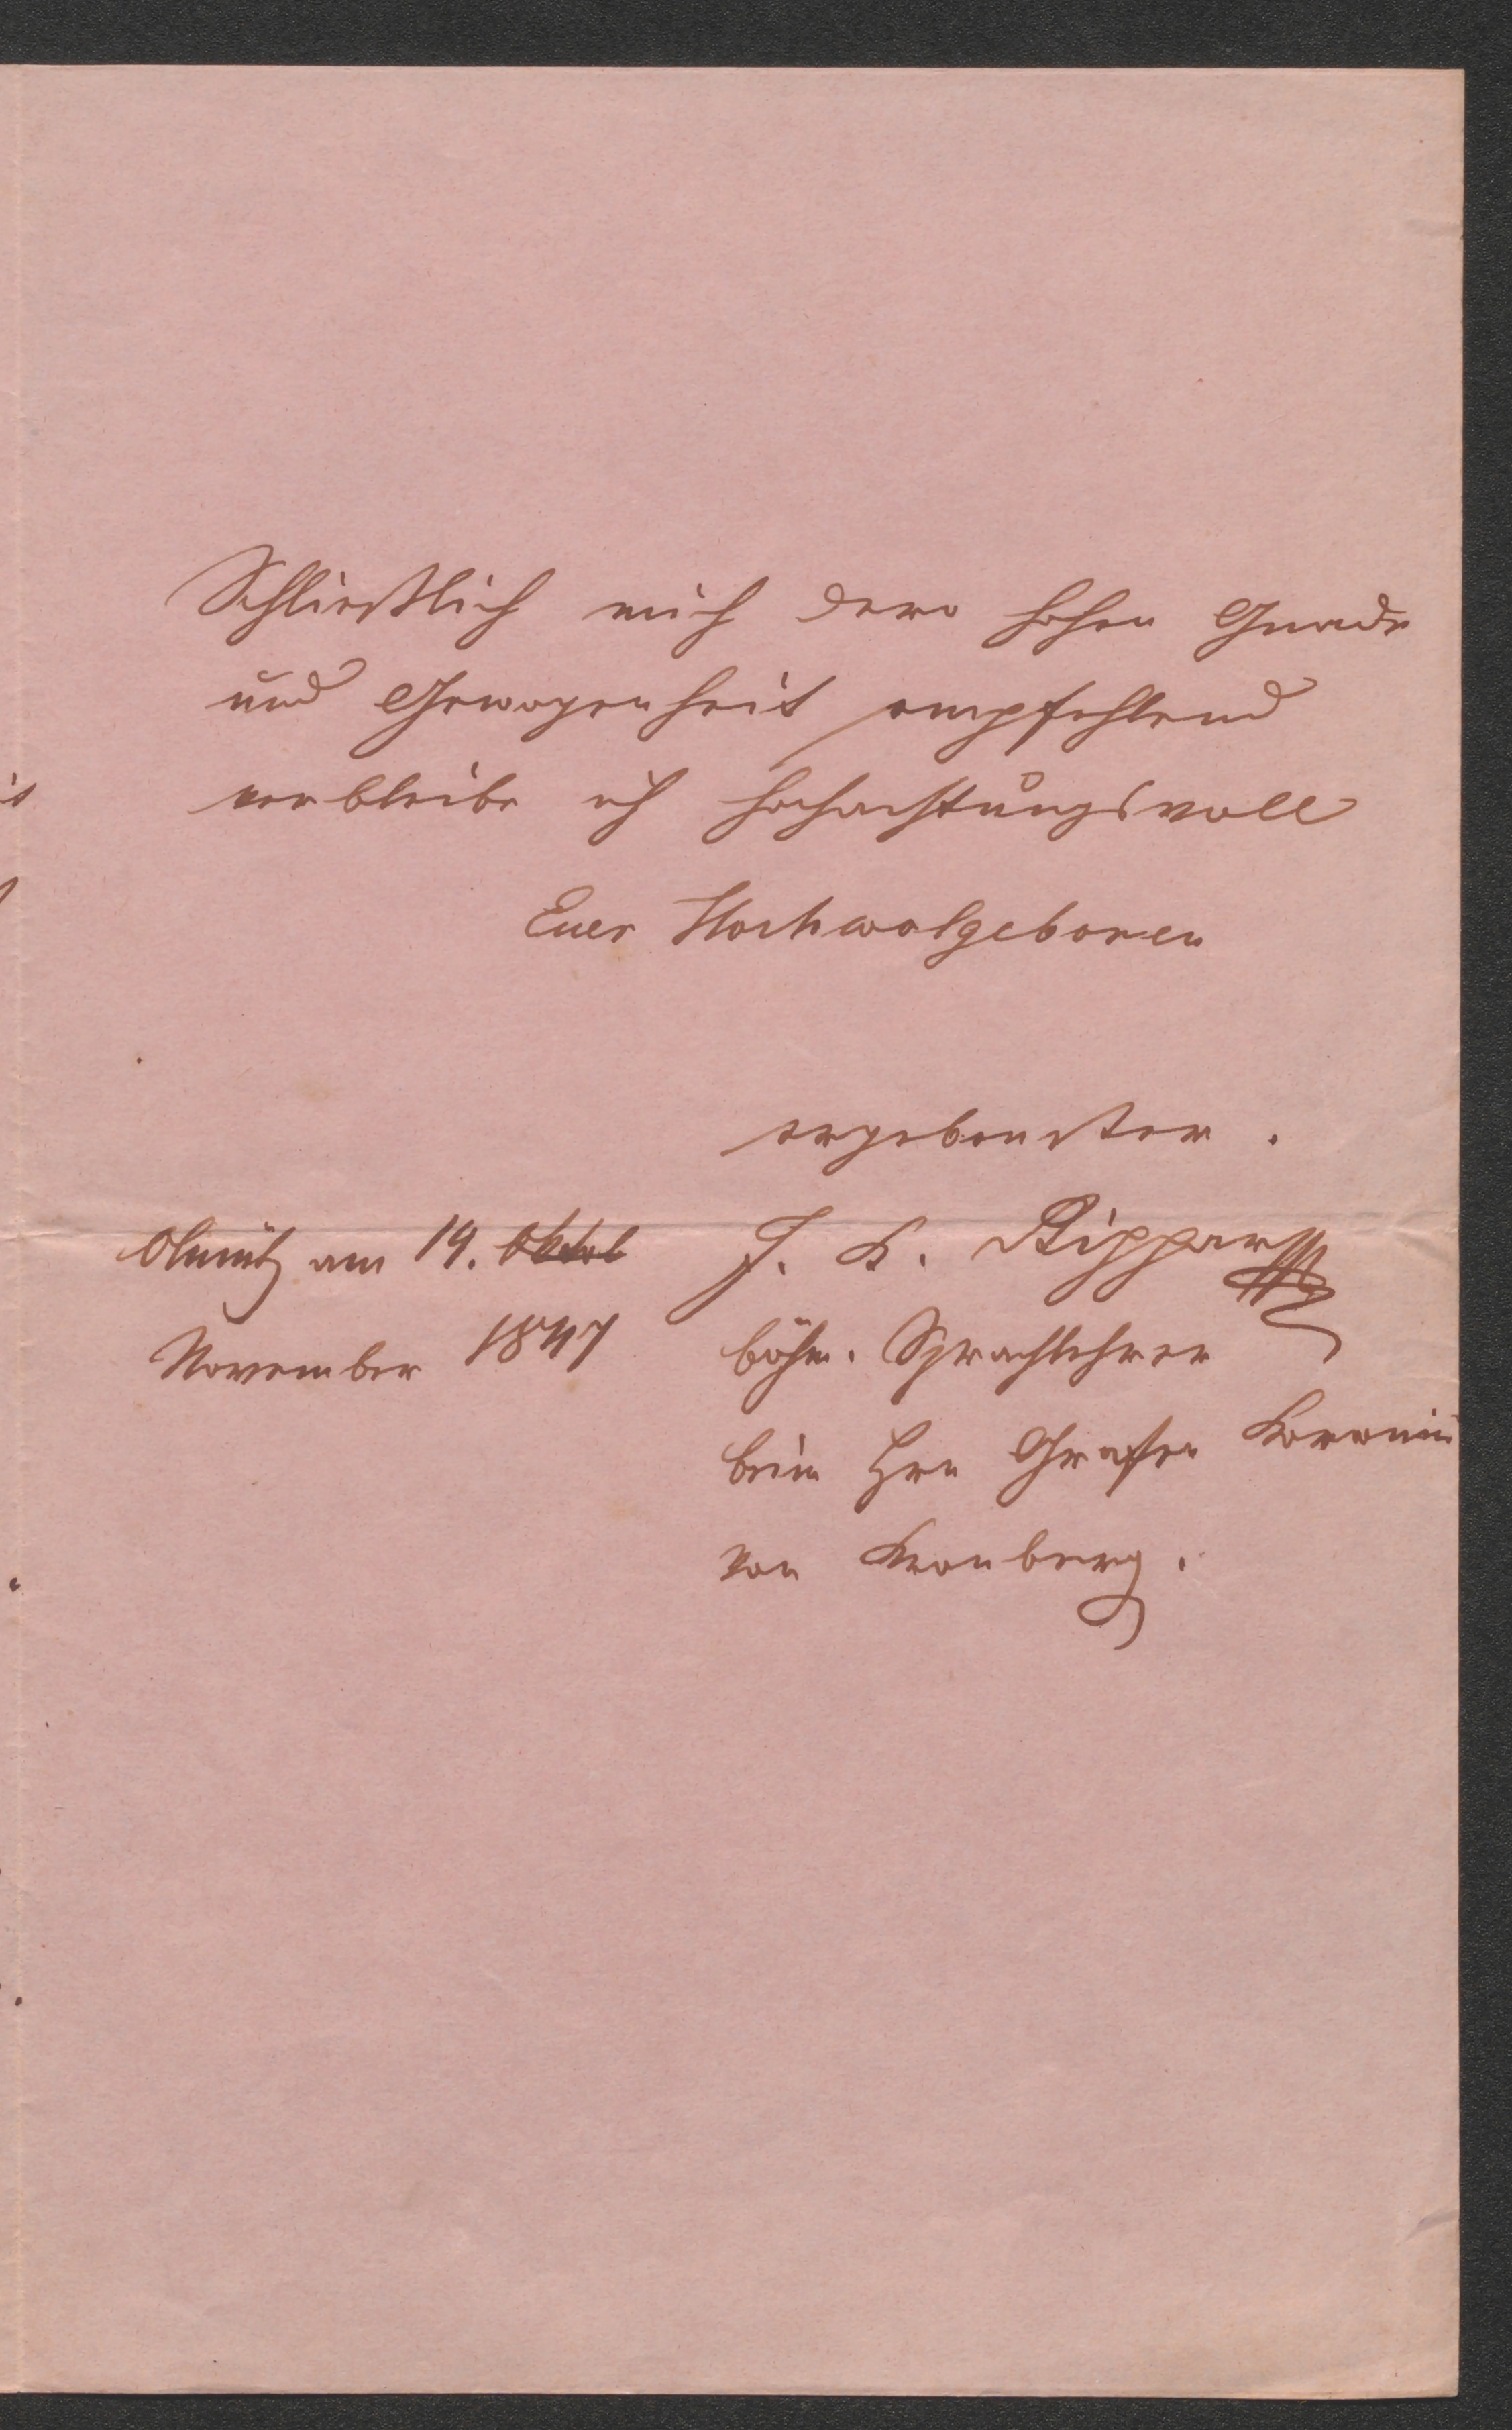 Schließlich mich dero hohen Gnade
und Gewogenheit empfehlend
verbleibe ich hochachtungsvoll
Euer Hochwolgeboren
ergebenster.
Olmütz am 14. Oktob
November 1847
J. K.
böhm. Sprachlehrer
beim Hrn Grafen Coronini
von Kronberg.